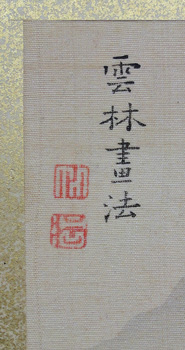 雲林畫法